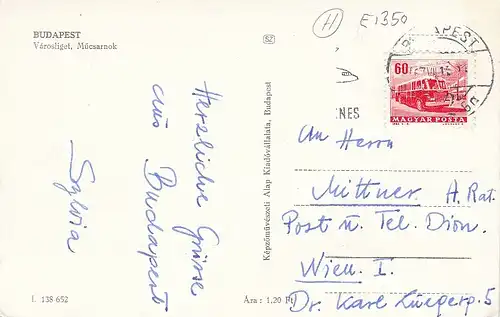 BUDAPEST
Városliget, Műcsarnok
Herzliche Grüsse
aus Budapest
Sylvia
I. 138 652
Ára : 1,20 Ft
Képzőművészeti Alap Kiadóvállalata, Budapest
H E1350
BUDAPEST
60f
MAGYAR POSTA
An Herrn
Mittner A. Rat.
Post u. Tel. Dion.
Wien I.
Dr. Karl Luegerp. 5